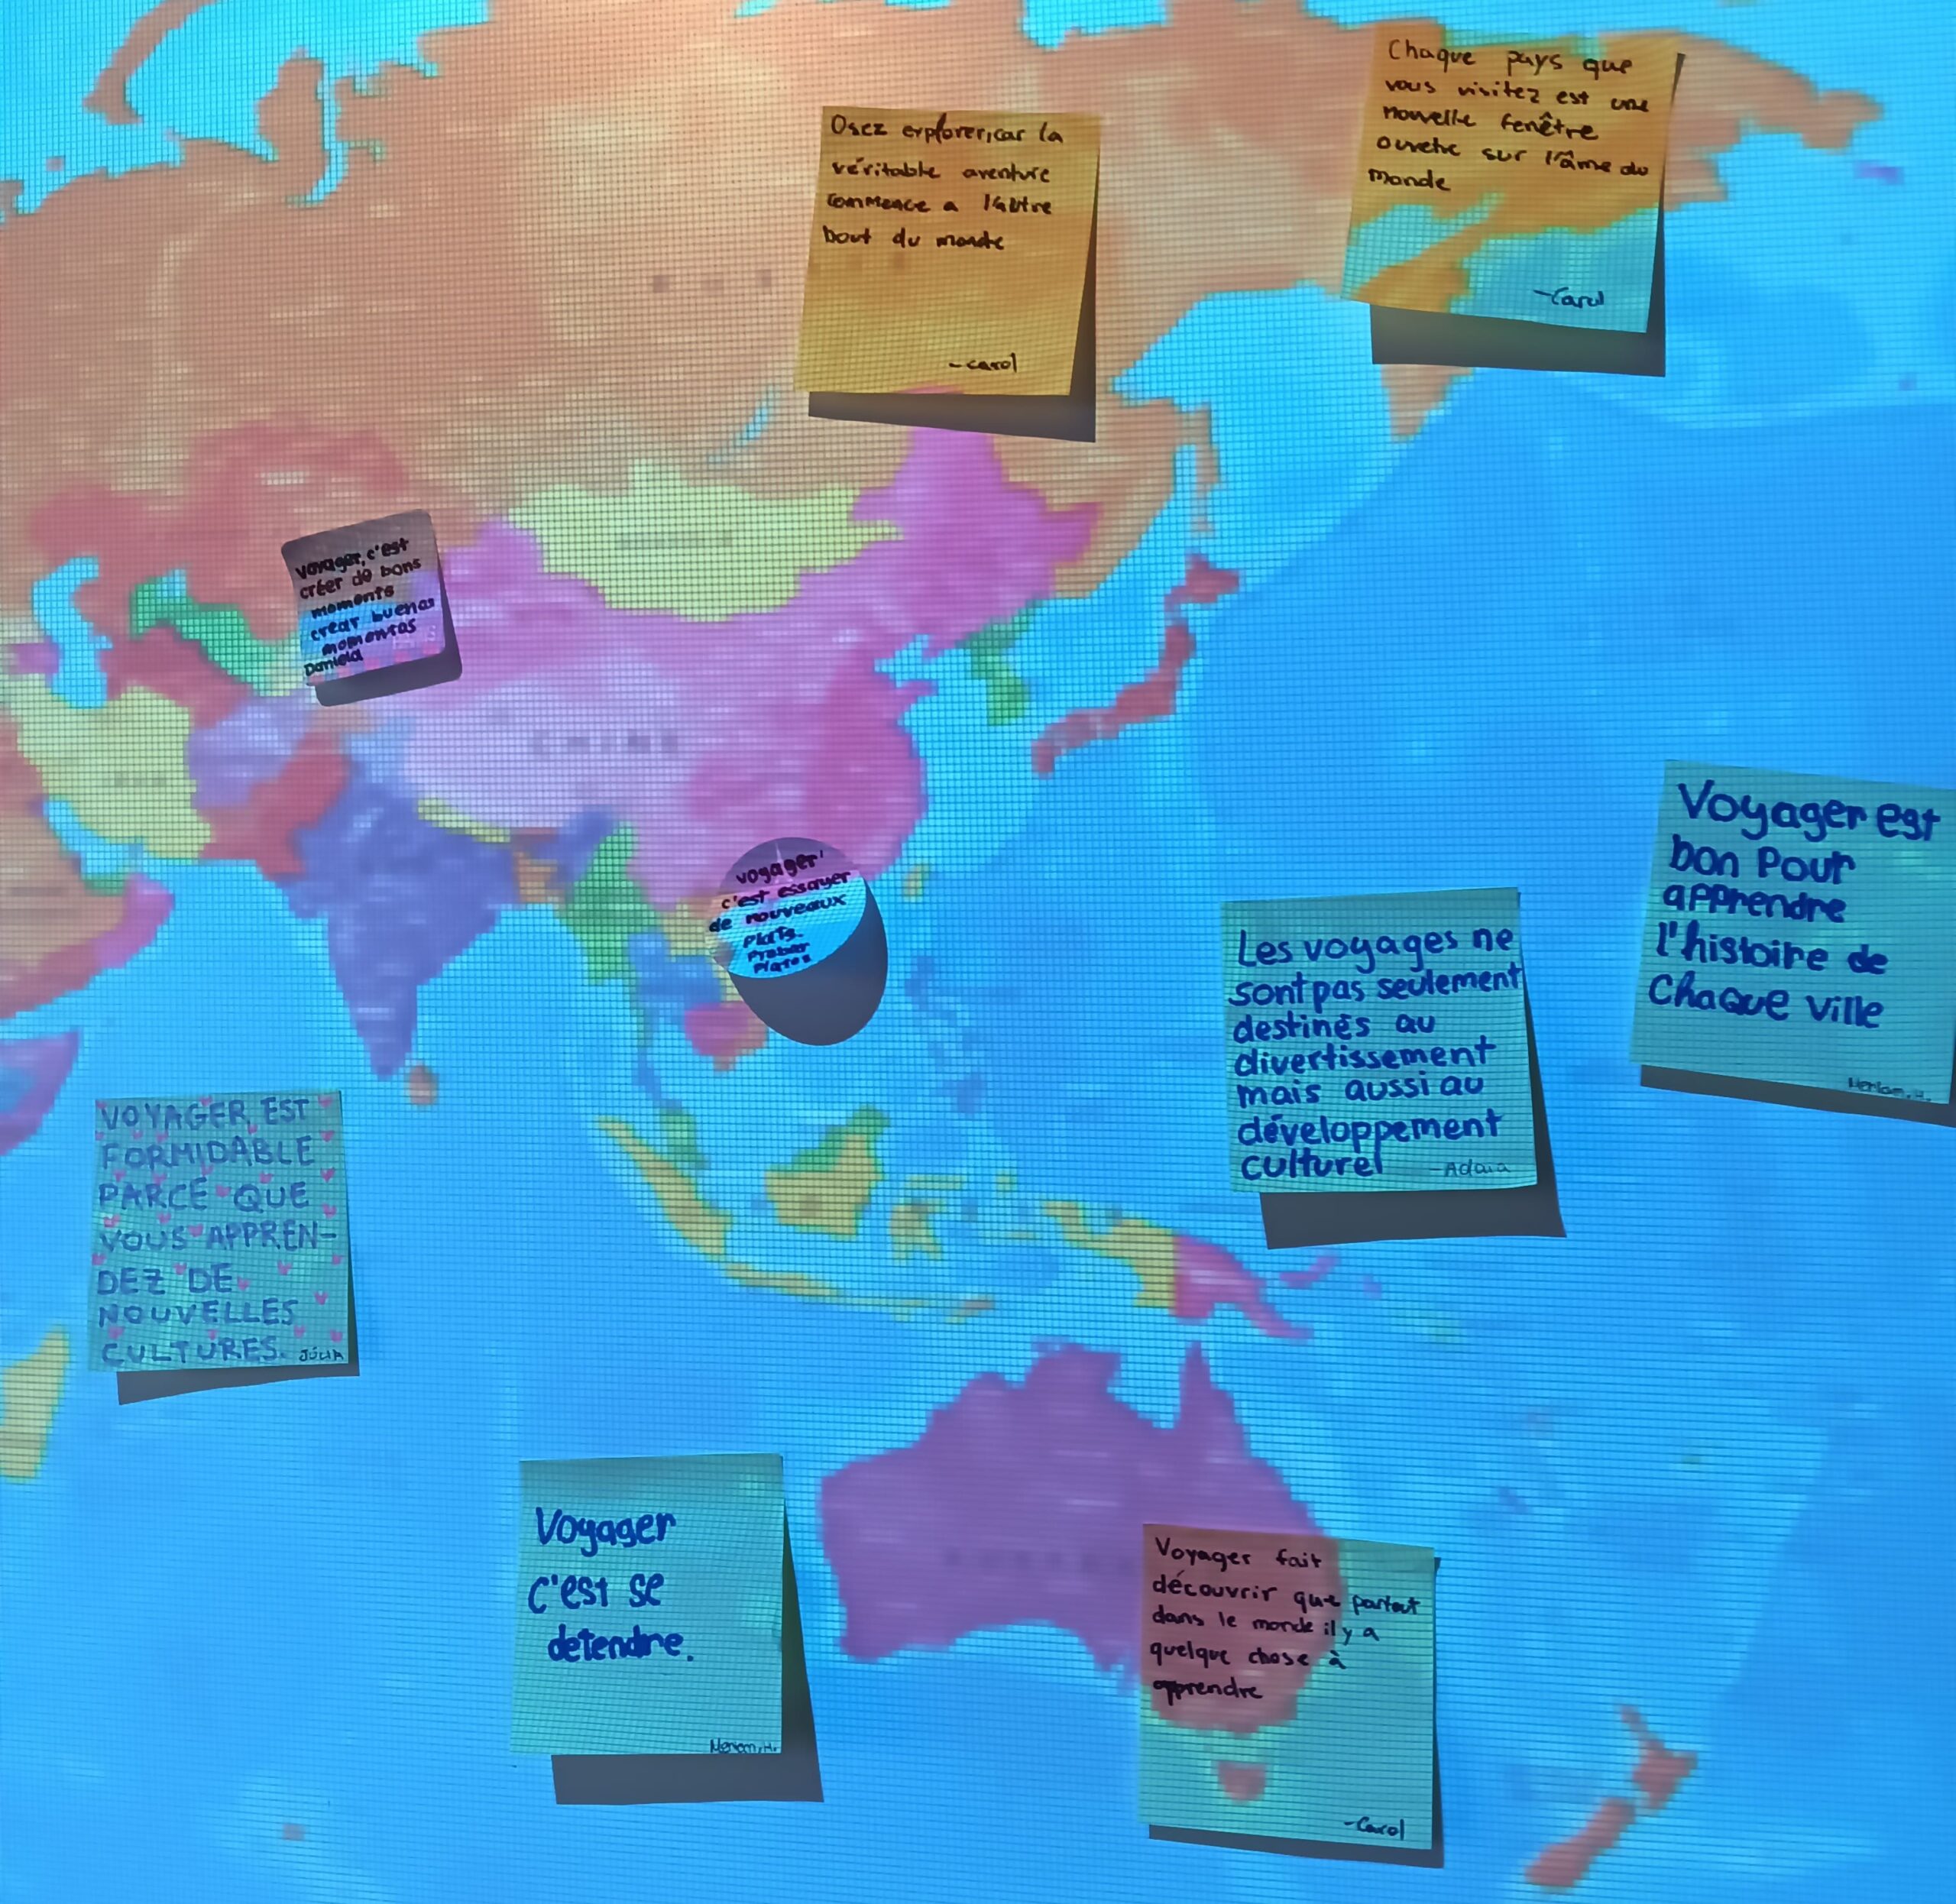 Osez explorer, car la
véritable aventure
commence a l'autre
bout du monde
-carol
Chaque pays que
vous visitez est une
nouvelle fenêtre
ouverte sur l'âme du
monde
-Carol
voyager, c'est
créer de bons
moments
crear buenos
momentos
Daniela
CHINE
voyager
c'est essayer
de nouveaux
plats.
Probar
Platos
Voyager est
bon pour
apprendre
l'histoire de
Chaque ville
Meriam, H.
Les voyages ne
sont pas seulement
destinés au
divertissement
mais aussi au
développement
culturel -Adaia
VOYAGER EST
FORMIDABLE
PARCE QUE
VOUS APPREN-
DEZ DE
NOUVELLES
CULTURES. JÚLIA
Voyager
C'est se
detendre.
Meriam, H.
Voyager fait
découvrir que partout
dans le monde il y a
quelque chose à
apprendre
-Carol